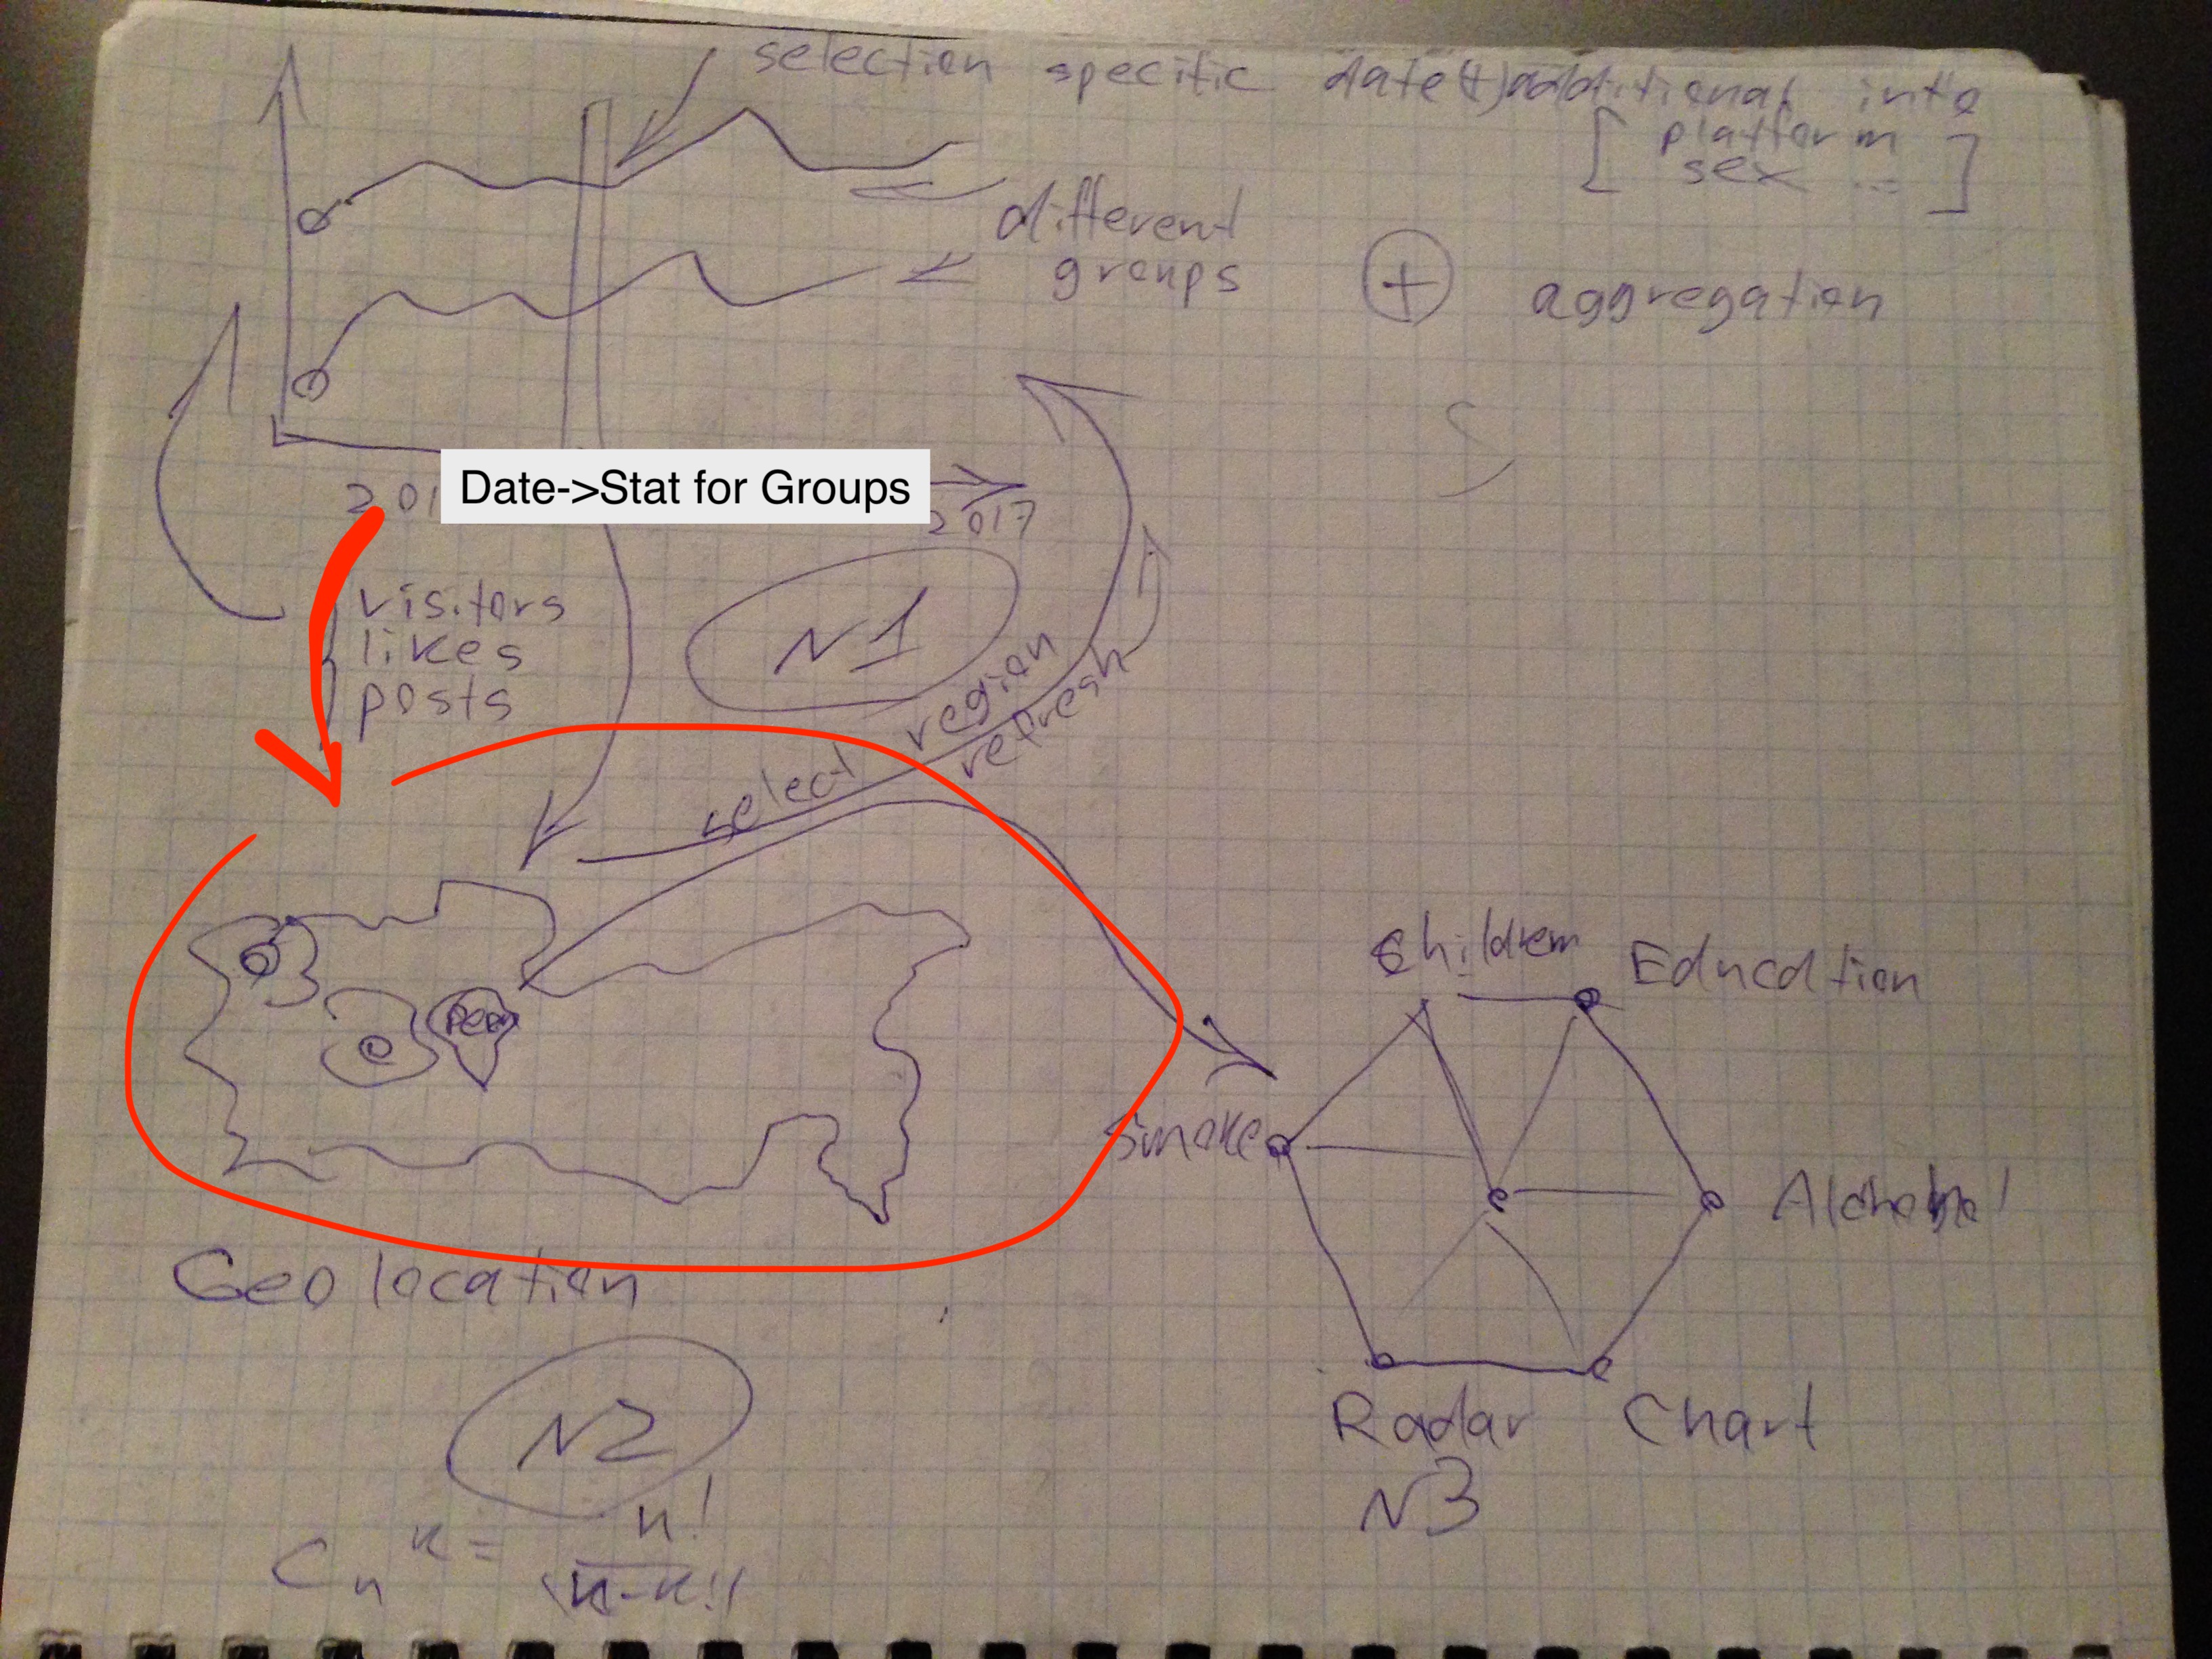 selection specific date(+) additional info
[ platform
sex ... ]
different
groups
+ aggregation
Date->Stat for Groups
201
2017
visitors
likes
posts
N1
select region
refresh
Children Education
Smoke
Geo location
Radar Chart
N2
N3
n!